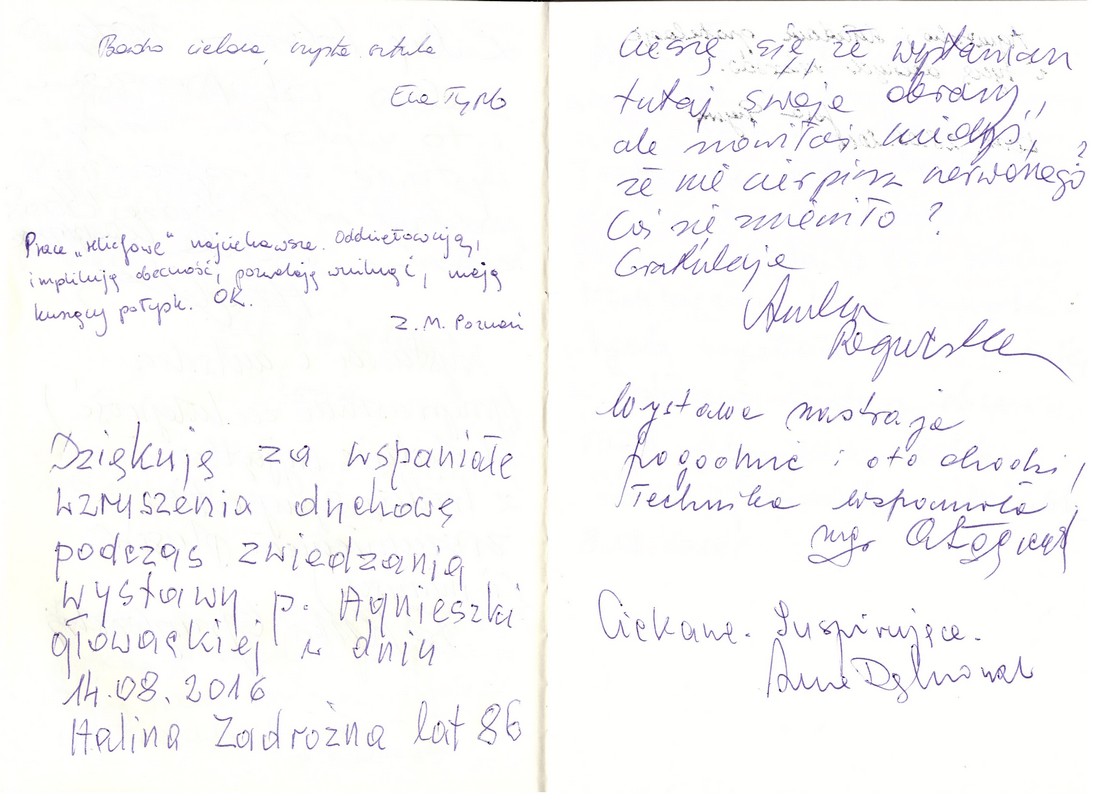 Bardzo ciekawa, czysta sztuka
Ewa
Prace „reliefowe" najciekawsze. Oddziaływują,
implikują obecność, pozwalają wniknąć, mają
kuszący połysk. OK.
Z. M. Poznań
Dziękuję za wspaniałe
wzruszenia duchowe
podczas zwiedzania
wystawy p. Agnieszki
Głowackiej w dniu
14.08.2016
Halina Zadrożna lat 86
Cieszę się że wystawiasz
tutaj swoje obrazy,
ale mówiłaś kiedyś,
że nie cierpisz
Coś się zmieniło?
Gratuluję
Wystawa nastraja
pogodnie i oto chodzi!
Technika wspaniała
mgr
Ciekawe. Inspirujące.